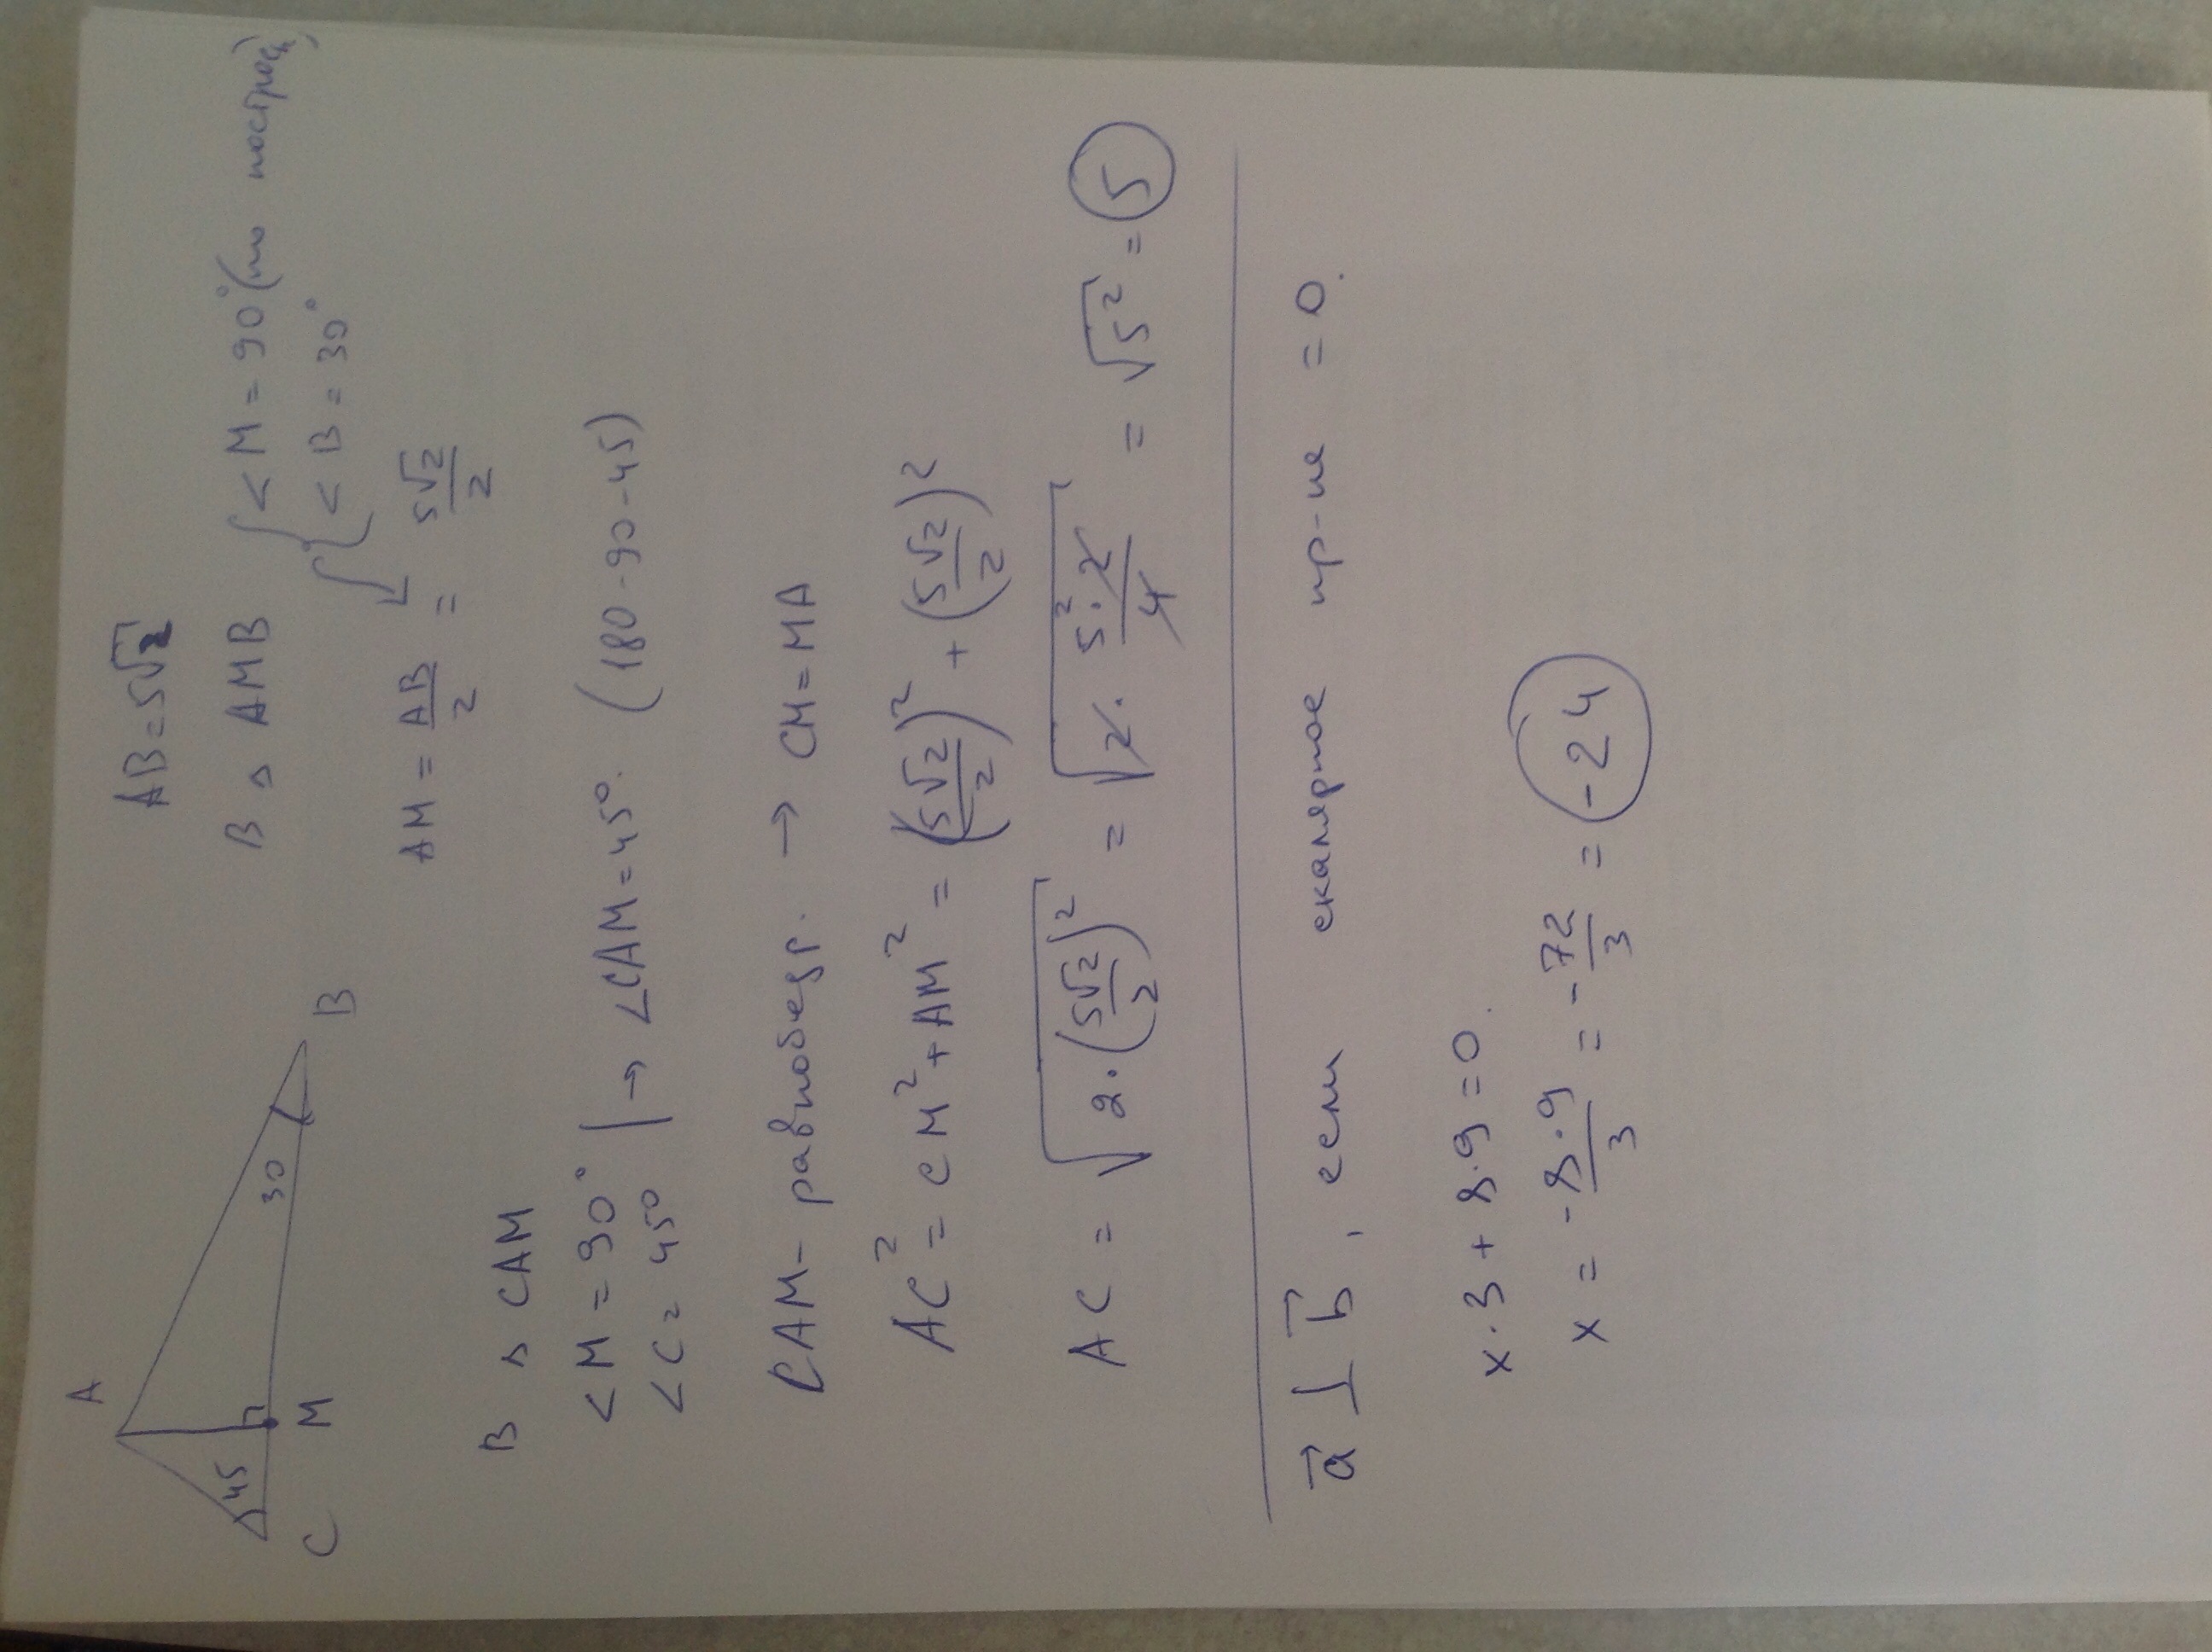 A
45
30
C
M
B
AB = 5√2
В △ AMB { < M = 90° (по построен)
< B = 30°
AM = AB/2 = 5√2/2
В △ CAM
< M = 90°
< C = 45° | → ∠CAM = 45°. (180 - 90 - 45)
CAM - равнобедр. → CM = MA
AC² = CM² + AM² = (5√2/2)² + (5√2/2)²
AC = √(2 · (5√2/2)²) = √(2 · 5² · 2/4) = √5² = 5
a⃗ ⊥ b⃗, если скалярное пр-ие = 0.
x · 3 + 8 · 9 = 0.
x = - 8 · 9/3 = - 72/3 = - 24